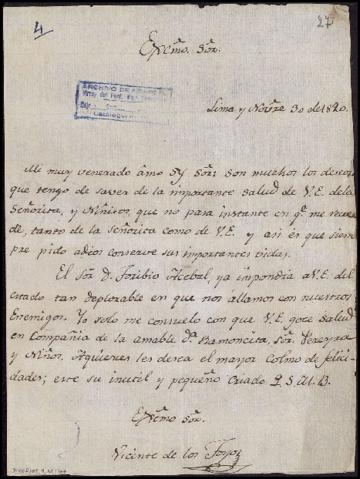 4
27
Exc̃mo. Sõr.
ARCHIVO DE
Lima y Novre 30 de 1820.
Mi muy venerado amo y Sõr: son muchos los deseos
que tengo de saver de la importante salud de V.E. dela
Señorita, y Niñitos, que no pasa instante en q.e me recue
de, tanto de la Señorita como de V.E. y asi es que siem
pre pido adios conserve sus importantes vidas.
El Sõr D. Toribio Acebal, ya inpondria aV.E. del
estado tan deplorable en que nos allamos con nuestros
Enemigos. Yo solo me consuelo con que V.E. gose salud
en Compañia de la amable D.a Ramoncita, Sõr. Pereyra
y Niños. Aquienes les desea el mayor Colmo de felici
dades; este su inutil y pequeño Criado Q.S.M.B.
Exc̃mo Sõr.
Vicente de los